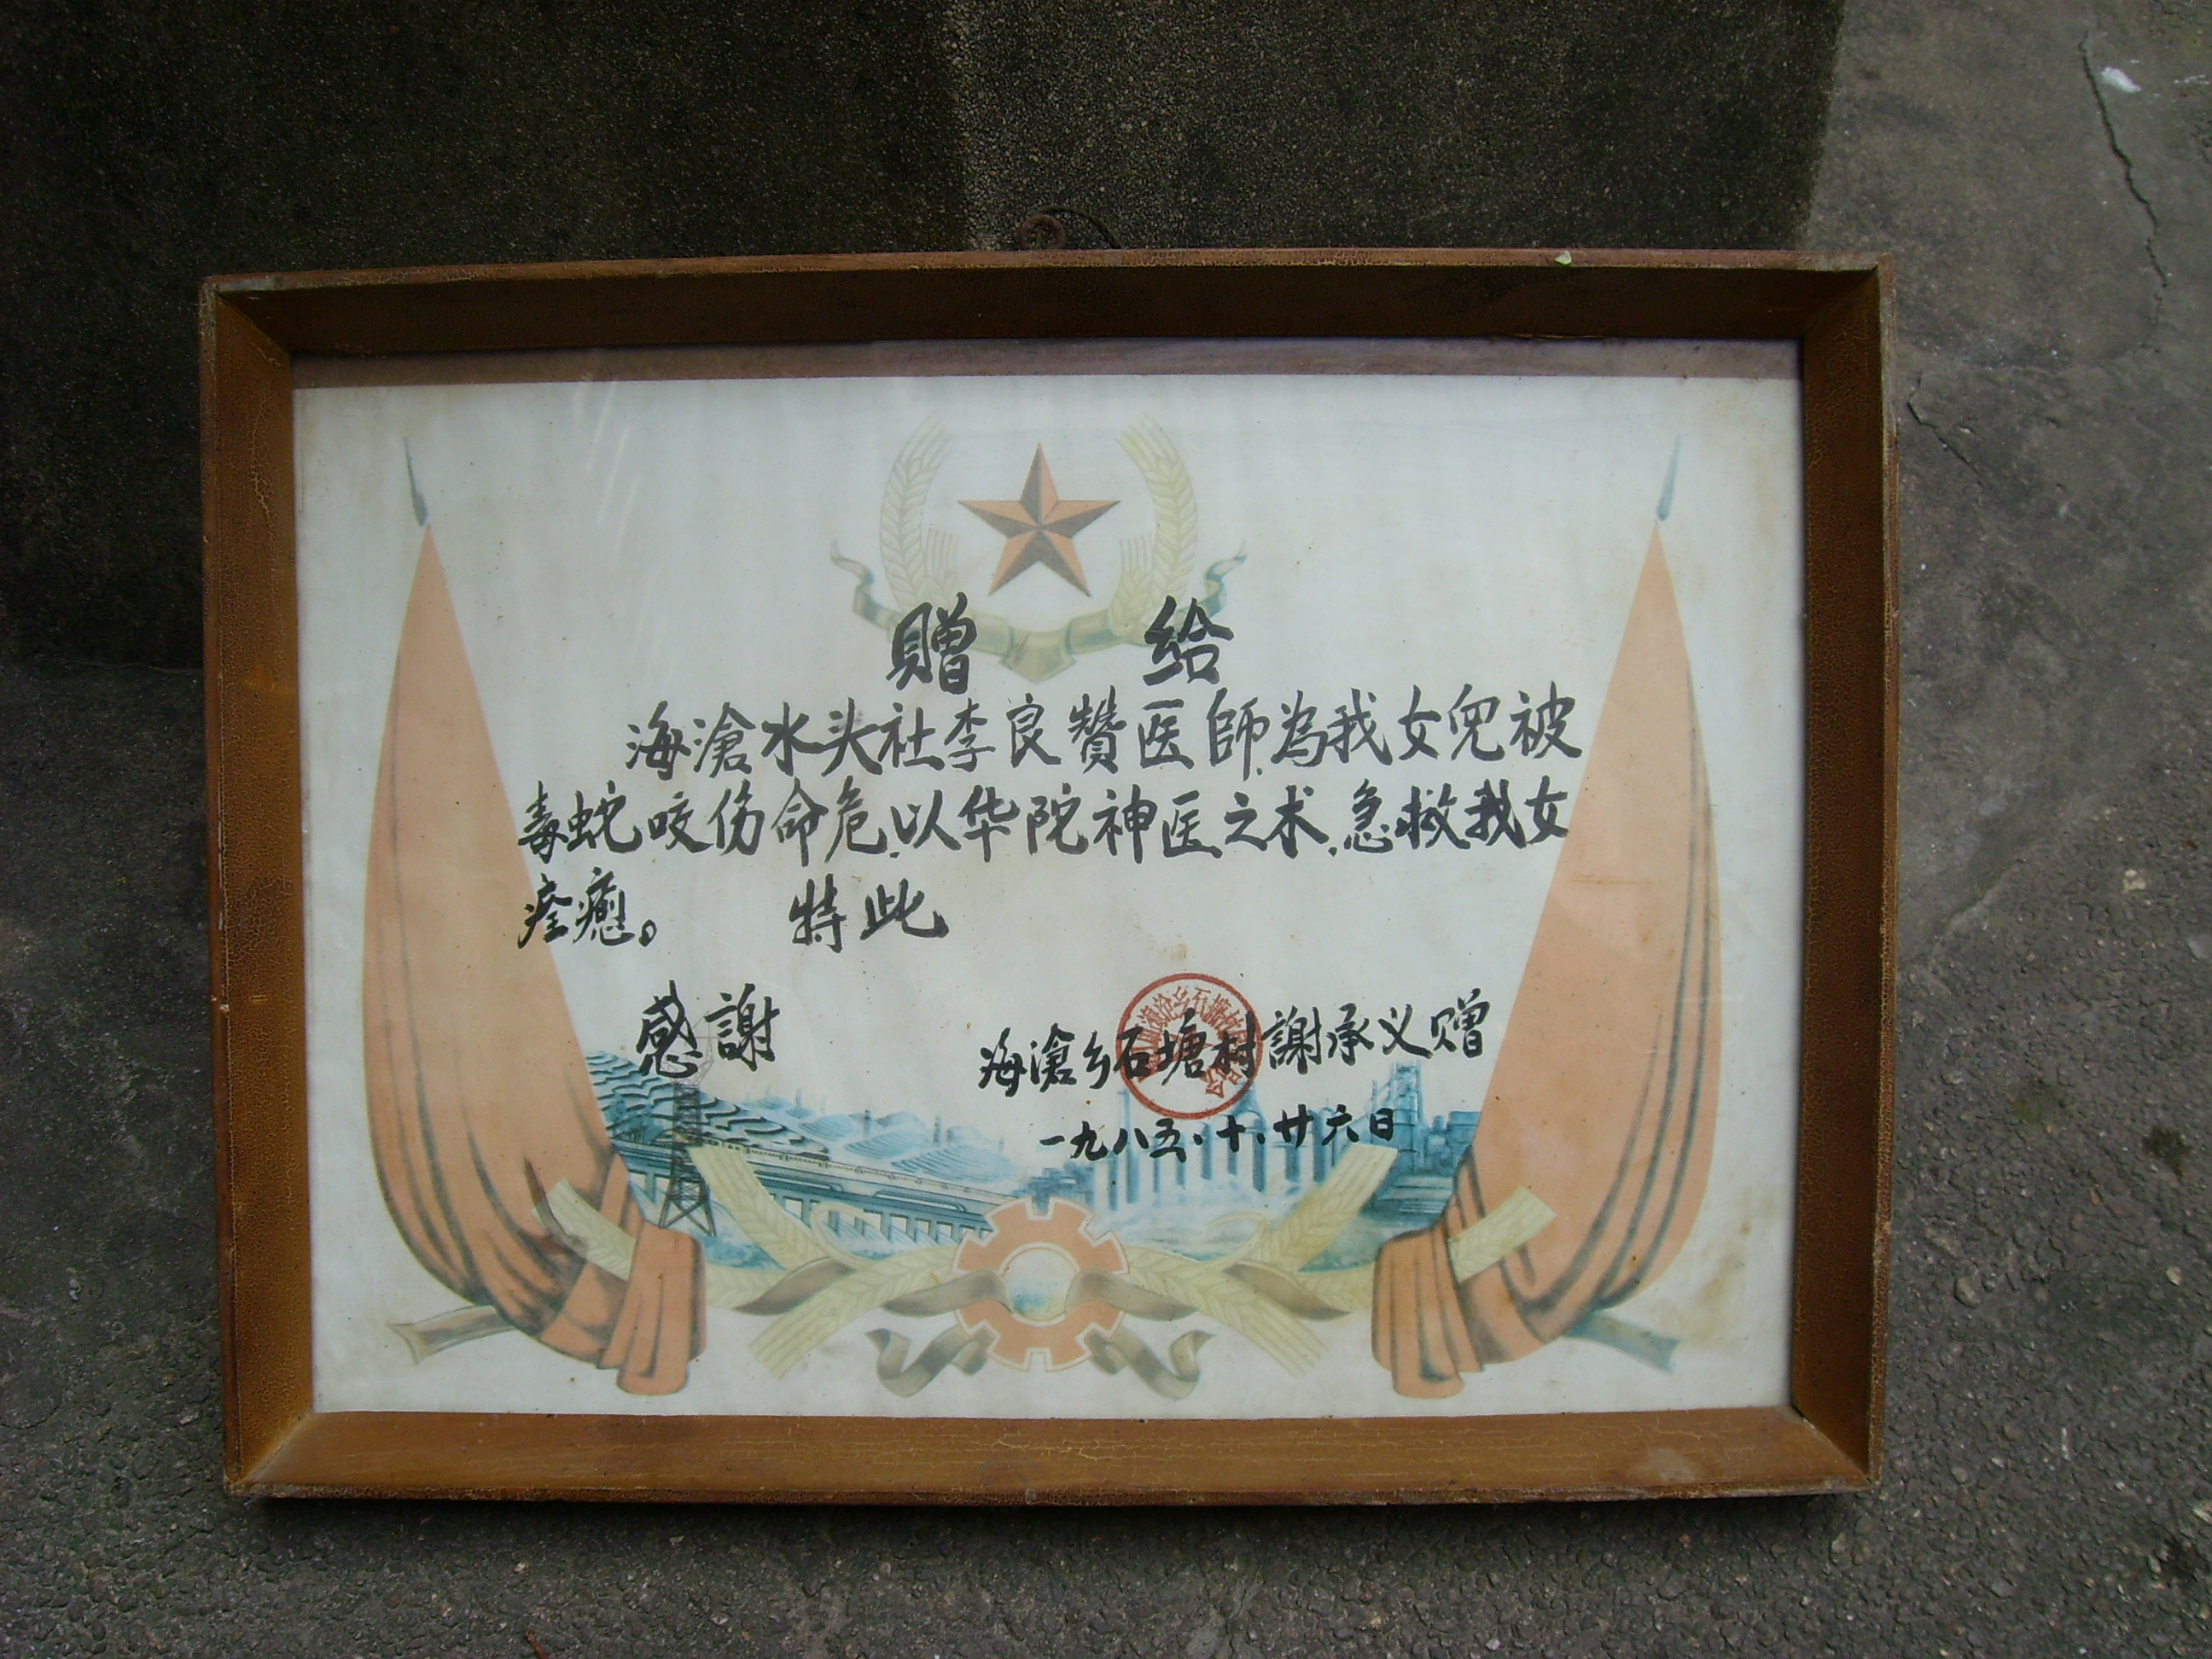 贈 给
海滄水头社李良赞医師.為我女兒被
毒蛇咬伤命危.以华陀神医之术.急救我女
痊癒。 特此
感謝
海滄乡石塘村謝承义赠
一九八五、十、廿六日